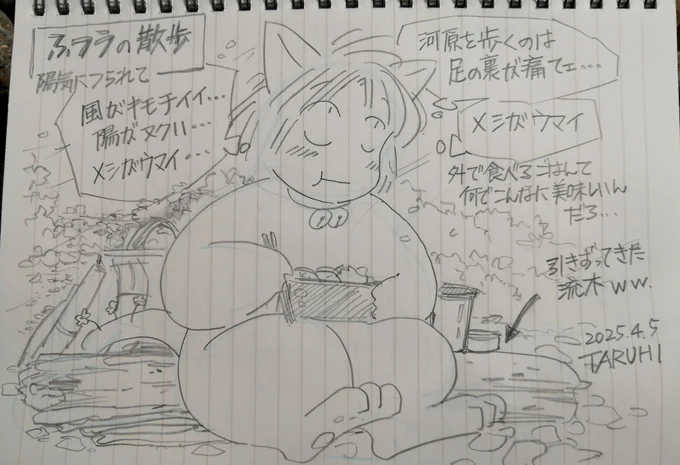 ふララの散歩
陽気につられて
風がキモチイイ…
陽がヌクい…
メシガウマイ…
河原を歩くのは
足の裏が痛てェ…
メシガウマイ
外で食べるごはんて
何でこんなに美味しいん
だろ…
引きずってきた
流木ww.
2025.4.5
TARUHI